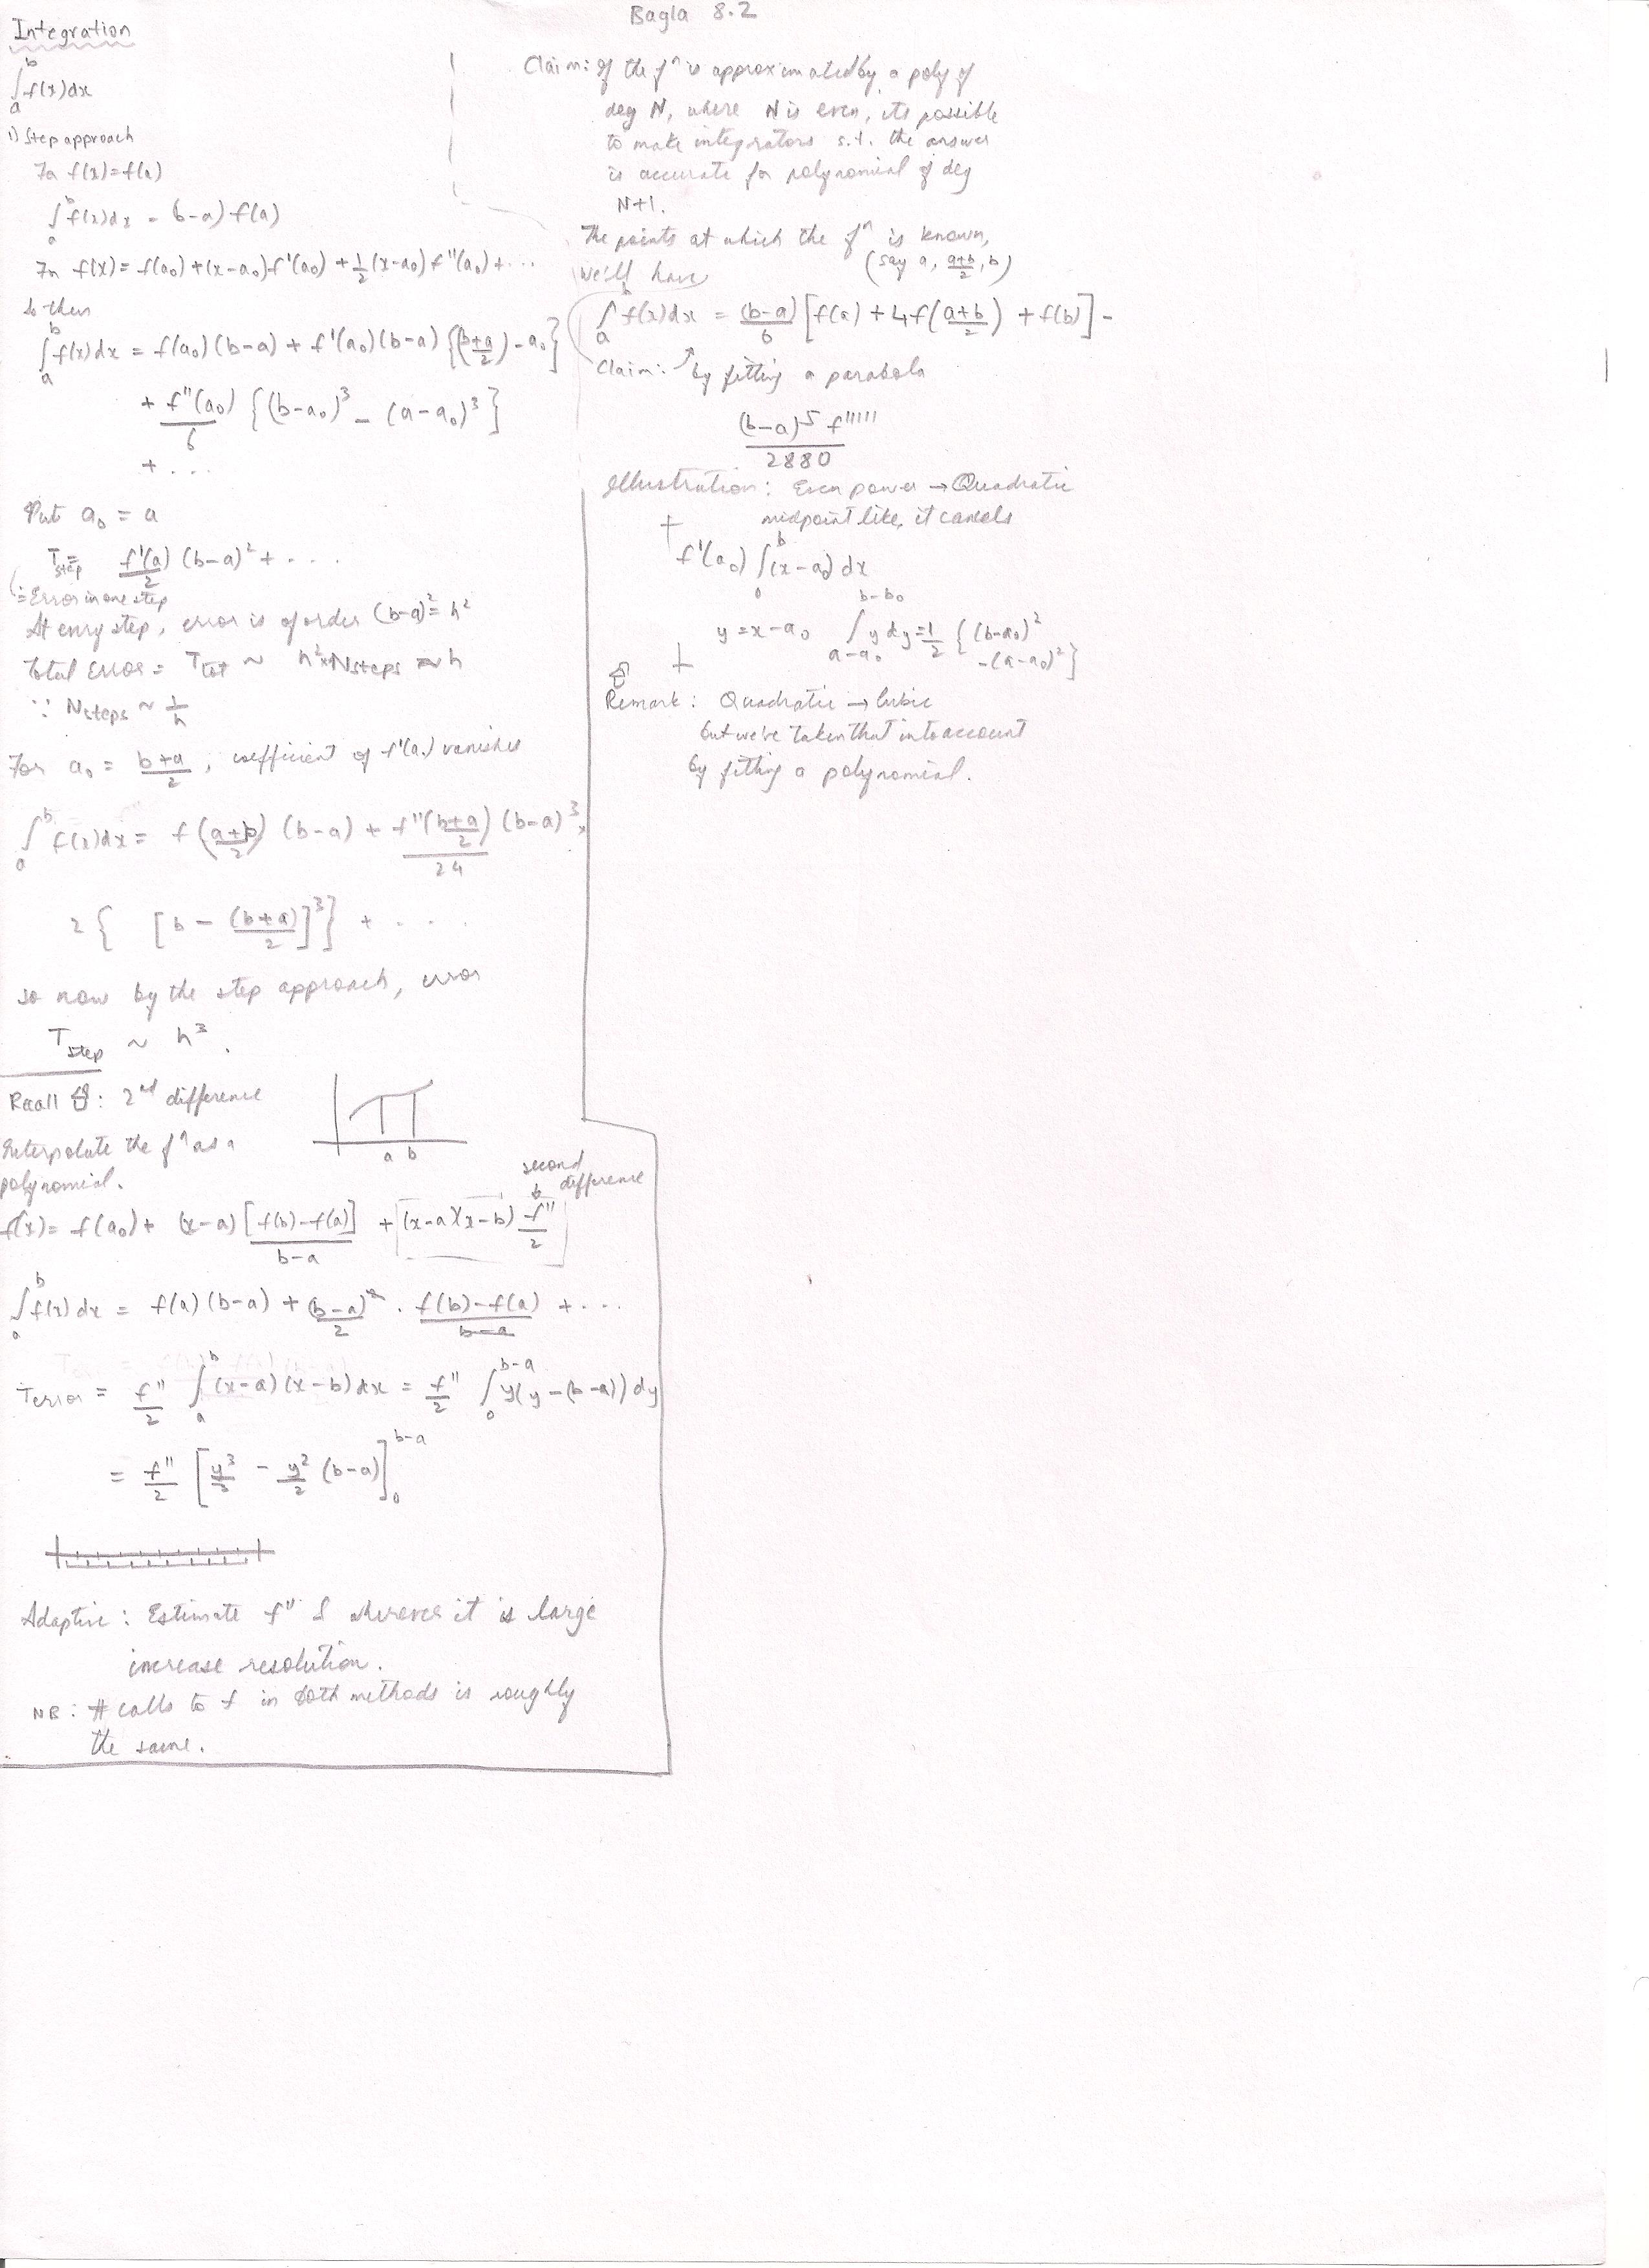 Bagla 8.2
Integration
∫_a^b f(x)dx
1) Step approach
Fn f(x)=f(a)
∫_a^b f(x)dx = (b-a) f(a)
Fn f(x) = f(a₀)+(x-a₀)f'(a₀) + 1/2 (x-a₀) f''(a₀) + ...
So then
∫_a^b f(x)dx = f(a₀)(b-a) + f'(a₀)(b-a) {(b+a/2) - a₀}
+ f''(a₀)/6 {(b-a₀)³ - (a-a₀)³}
+ ...
Put a₀ = a
T_step = f'(a)/2 (b-a)² + ....
:= Error in one step
At every step, error is of order (b-a)² = h²
Total Error = T_tot ~ h² × Nsteps ~ h
∵ Nsteps ~ 1/h
For a₀ = b+a/2, coefficient of f'(a₀) vanishes
∫_a^b f(x)dx = f(a+b/2) (b-a) + f''(b+a/2)/24 (b-a)³ ×
2 { [b - (b+a)/2]³} + ....
so now by the step approach, error
T_step ~ h³.
Recall : 2nd difference
a b
Interpolate the fⁿ as a
polynomial.
second
difference
f(x) = f(a₀) + (x-a) [f(b)-f(a)]/b-a + (x-a)(x-b) f''/2
∫_a^b f(x)dx = f(a)(b-a) + (b-a)²/2 . f(b)-f(a)/b-a + ...
Terror = f''/2 ∫_a^b (x-a)(x-b)dx = f''/2 ∫_0^{b-a} y(y-(b-a))dy
= f''/2 [y³/3 - y²/2 (b-a)]_0^{b-a}
Adaptive : Estimate f'' & wherever it is large
increase resolution.
NB : # calls to f in both methods is roughly
the same.
Claim: If the fⁿ is approximated by a poly of
deg N, where N is even, its possible
to make integrators s.t. the answer
is accurate for polynomial of deg
N+1.
The points at which the fⁿ is known,
(say a, a+b/2, b)
we'll have
∫_a^b f(x)dx = (b-a)/6 [f(a) + 4f(a+b/2) + f(b)] -
Claim: ↗ by fitting a parabola
(b-a)⁵ f'''''/2880
Illustration : Even power → Quadratic
midpoint like, it cancels
f'(a₀) ∫_a^b (x-a₀) dx
y = x-a₀ ∫_{a-a₀}^{b-b₀} y dy = 1/2 {(b-a₀)²
-(a-a₀)²}
Remark : Quadratic → Cubic
but we've taken that into account
by fitting a polynomial.